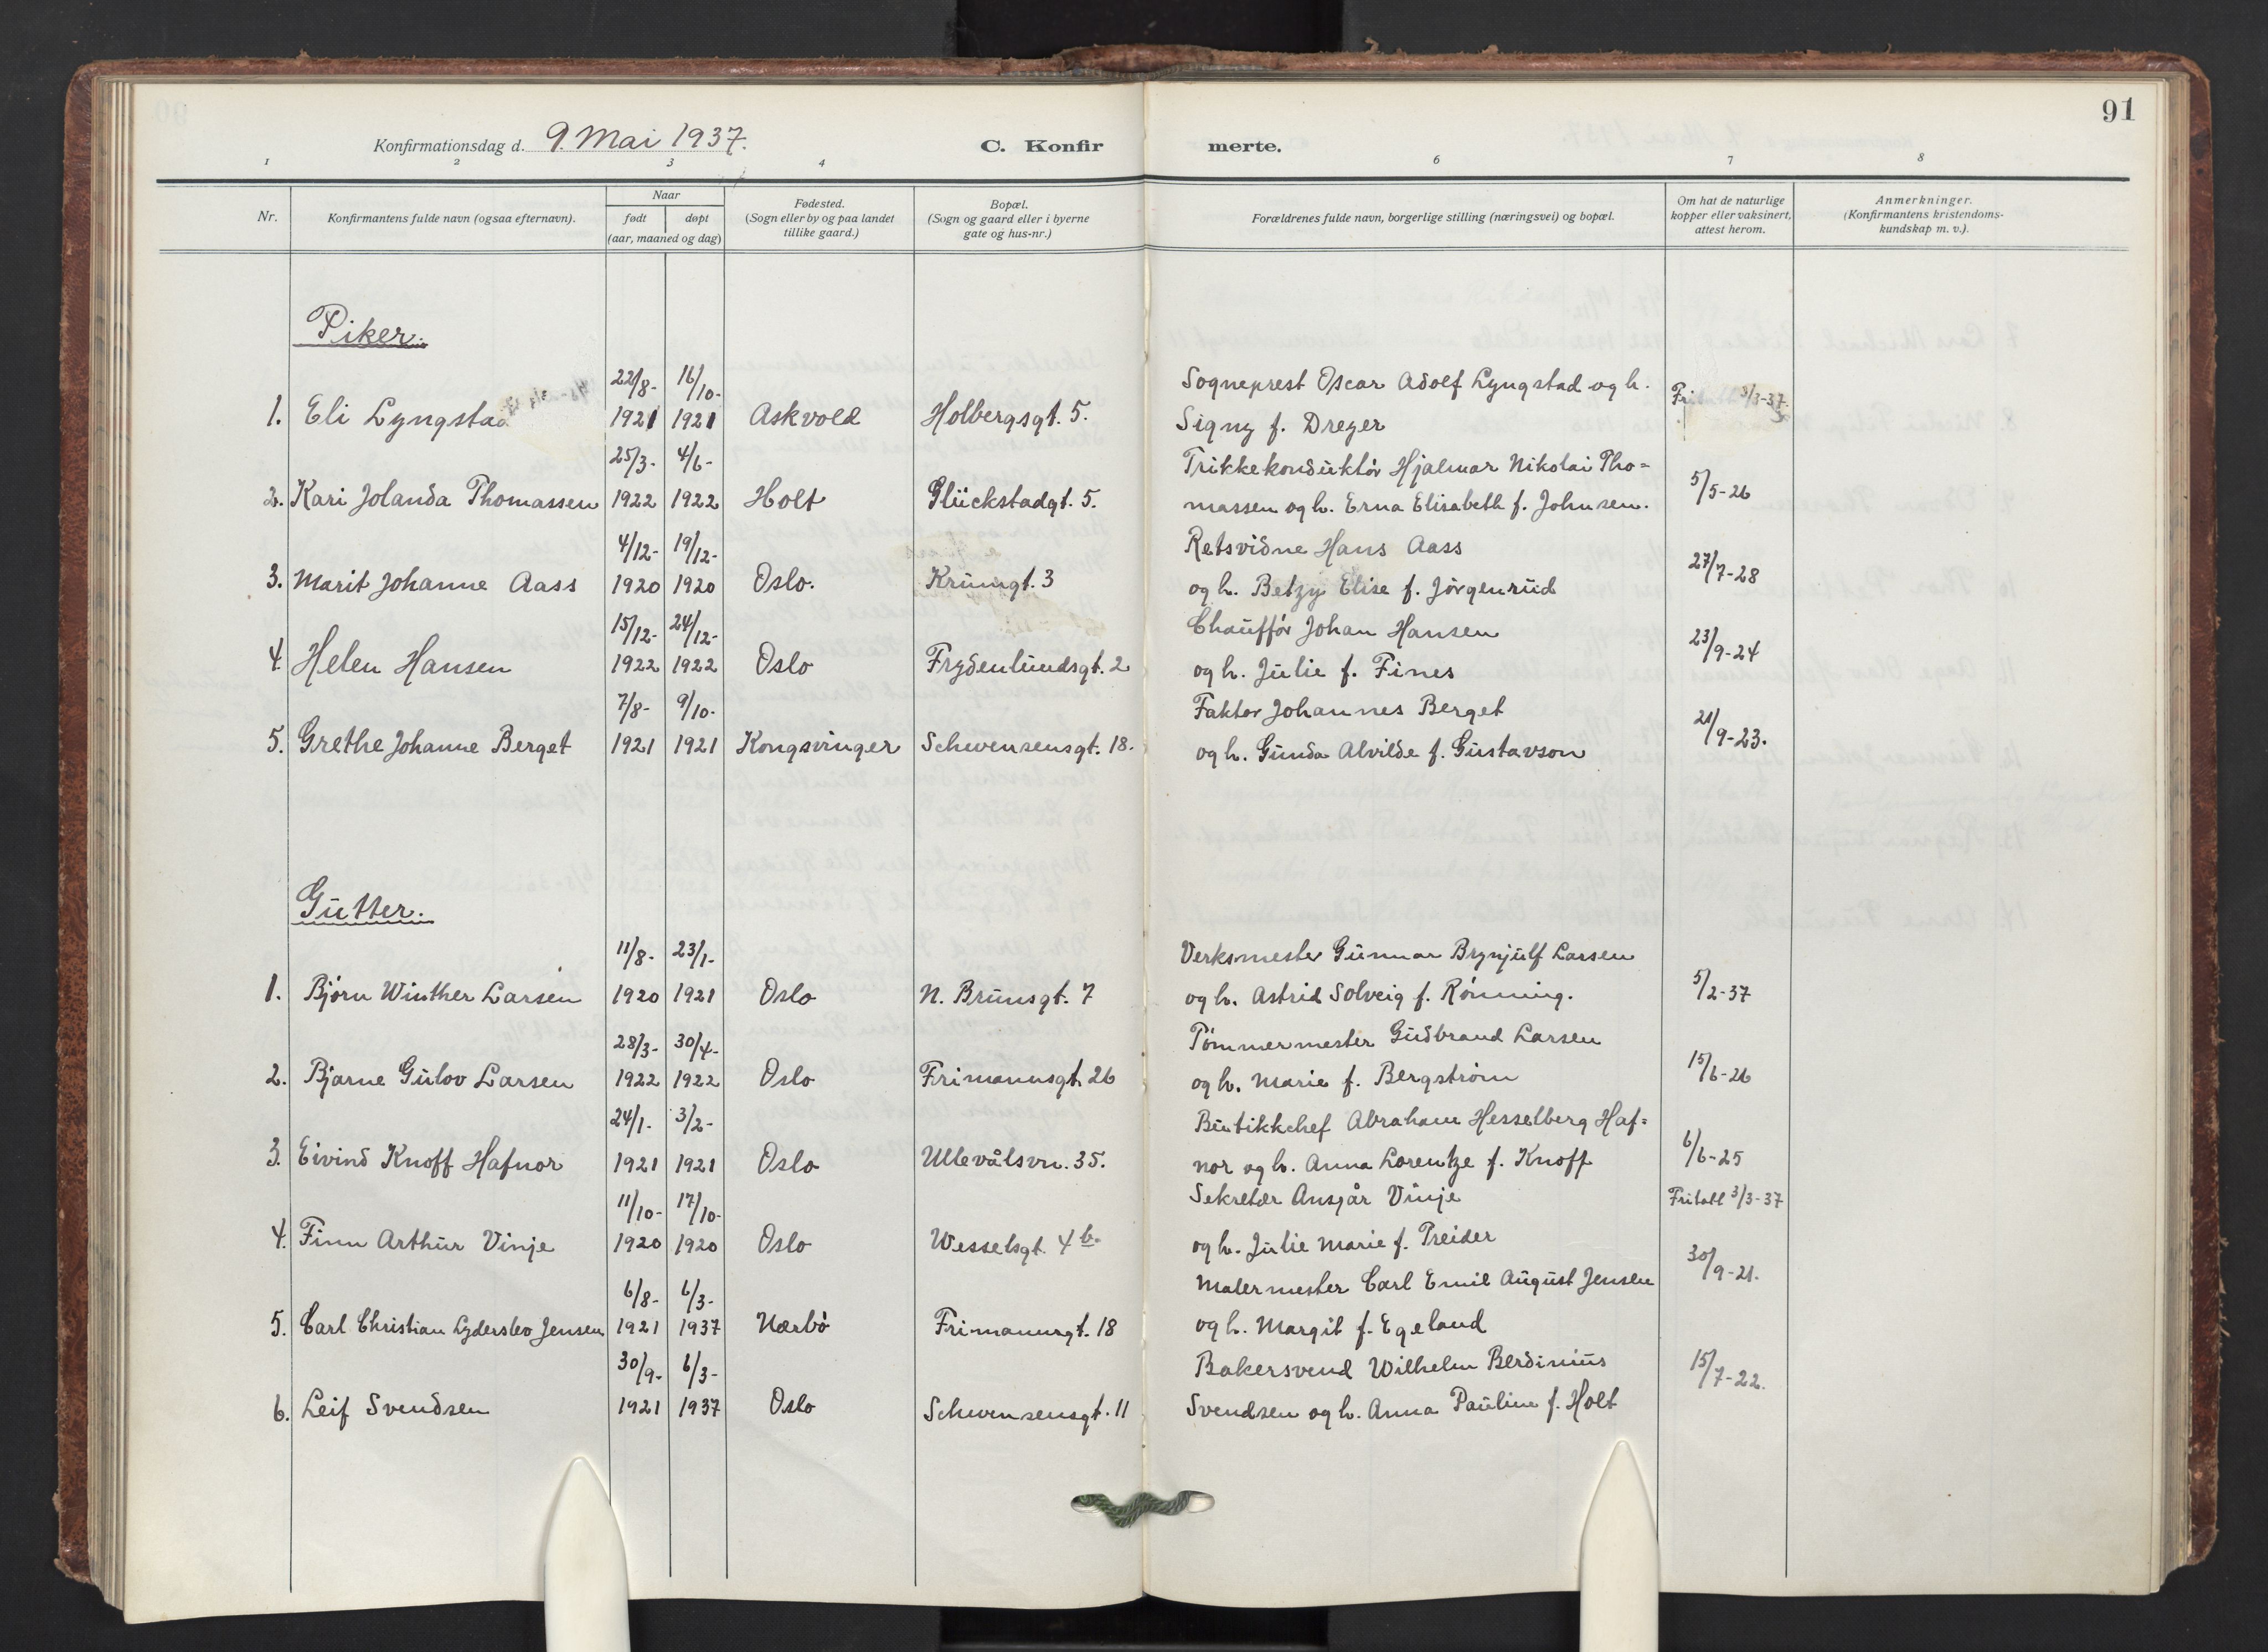 91
Konfirmationsdag d. 9. Mai 1937.
C. Konfir merte.
1 2 3 4 6 7 8
Nr.
Konfirmantens fulde navn (ogsaa efternavn).
Naar
født døpt
(aar, maaned og dag)
Fødested.
(Sogn eller by og paa landet
tillike gaard.)
Bopæl.
(Sogn og gaard eller i byerne
gate og hus-nr.)
Forældrenes fulde navn, borgerlige stilling (næringsvei) og bopæl.
Om hat de naturlige
kopper eller vaksinert,
attest herom.
Anmerkninger.
(Konfirmantens kristendoms-
kundskap m. v.).
Piker.
22/8- 16/10- Sogneprest Oscar Adolf Lyngstad og h.
1. Eli Lyngstad 1921 1921 Askvold Holbergsgt. 5. Signy f. Dreyer 3/3-37.
25/3- 4/6- Trikkekonduktör Hjalmar Nikolai Tho=
2. Kari Jolanda Thomassen 1922 1922 Holt Glückstadgt. 5. massen og h. Erna Elisabeth f. Johnsen. 5/5-26
4/12- 19/12- Retsvidne Hans Aass
3. Marit Johanne Aass 1920 1920 Oslo. Krumgt. 3 og h. Betzy Elise f. Jörgenrud 27/7-28
15/12- 24/12- Chaufför Johan Hansen
4. Helen Hansen 1922 1922 Oslo Frydenlundsgt. 2 og h. Julie f. Fines 23/9-24
7/8- 9/10- Faktor Johannes Berget
5. Grethe Johanne Berget 1921 1921 Kongsvinger Schwensensgt. 18. og h. Gunda Alvilde f. Gustavson 21/9-23.
Gutter.
11/8- 23/1- Verksmester Gunnar Brynjulf Larsen
1. Björn Winther Larsen 1920 1921 Oslo N. Brunsgt. 7 og h. Astrid Solveig f. Rönning. 5/2-37
28/3- 30/4- Tömmermester Gudbrand Larsen
2. Bjarne Gulov Larsen 1922 1922 Oslo Frimannsgt. 26 og h. Marie f. Bergström 15/6-26
24/1- 3/2- Butikkchef Abraham Hesselberg Haf=
3. Eivind Knoff Hafnor 1921 1921 Oslo Ullevålsvn. 35. nor og h. Anna Lorentze f. Knoff 6/6-25
11/10- 17/10- Sekretær Ansgår Vinje Fritatt 3/3-37
4. Finn Arthur Vinje 1920 1920 Oslo Wesselsgt. 4 b. og h. Julie Marie f. Preider
6/8- 6/3- Malermester Carl Emil August Jensen 30/9-21.
5. Carl Christian Lyderslev Jensen 1921 1937 Nærbö Frimannsgt. 18 og h. Margit f. Egeland
30/9- 6/3- Bakersvend Wilhelm Berdinius 15/7-22.
6. Leif Svendsen 1921 1937 Oslo Schwensensgt. 11 Svendsen og h. Anna Pauline f. Holt